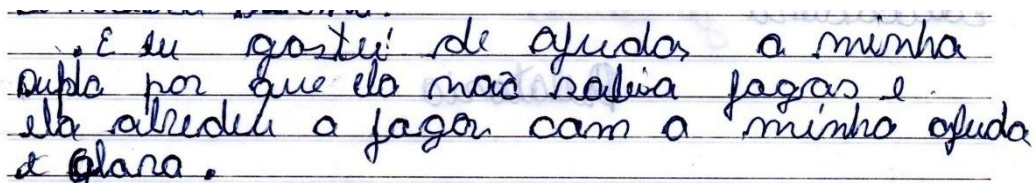 . E eu gostei de ajudar a minha
dupla por que ela não sabia jogar e
ela aprendeu a jogar com a minha ajuda
e clara.